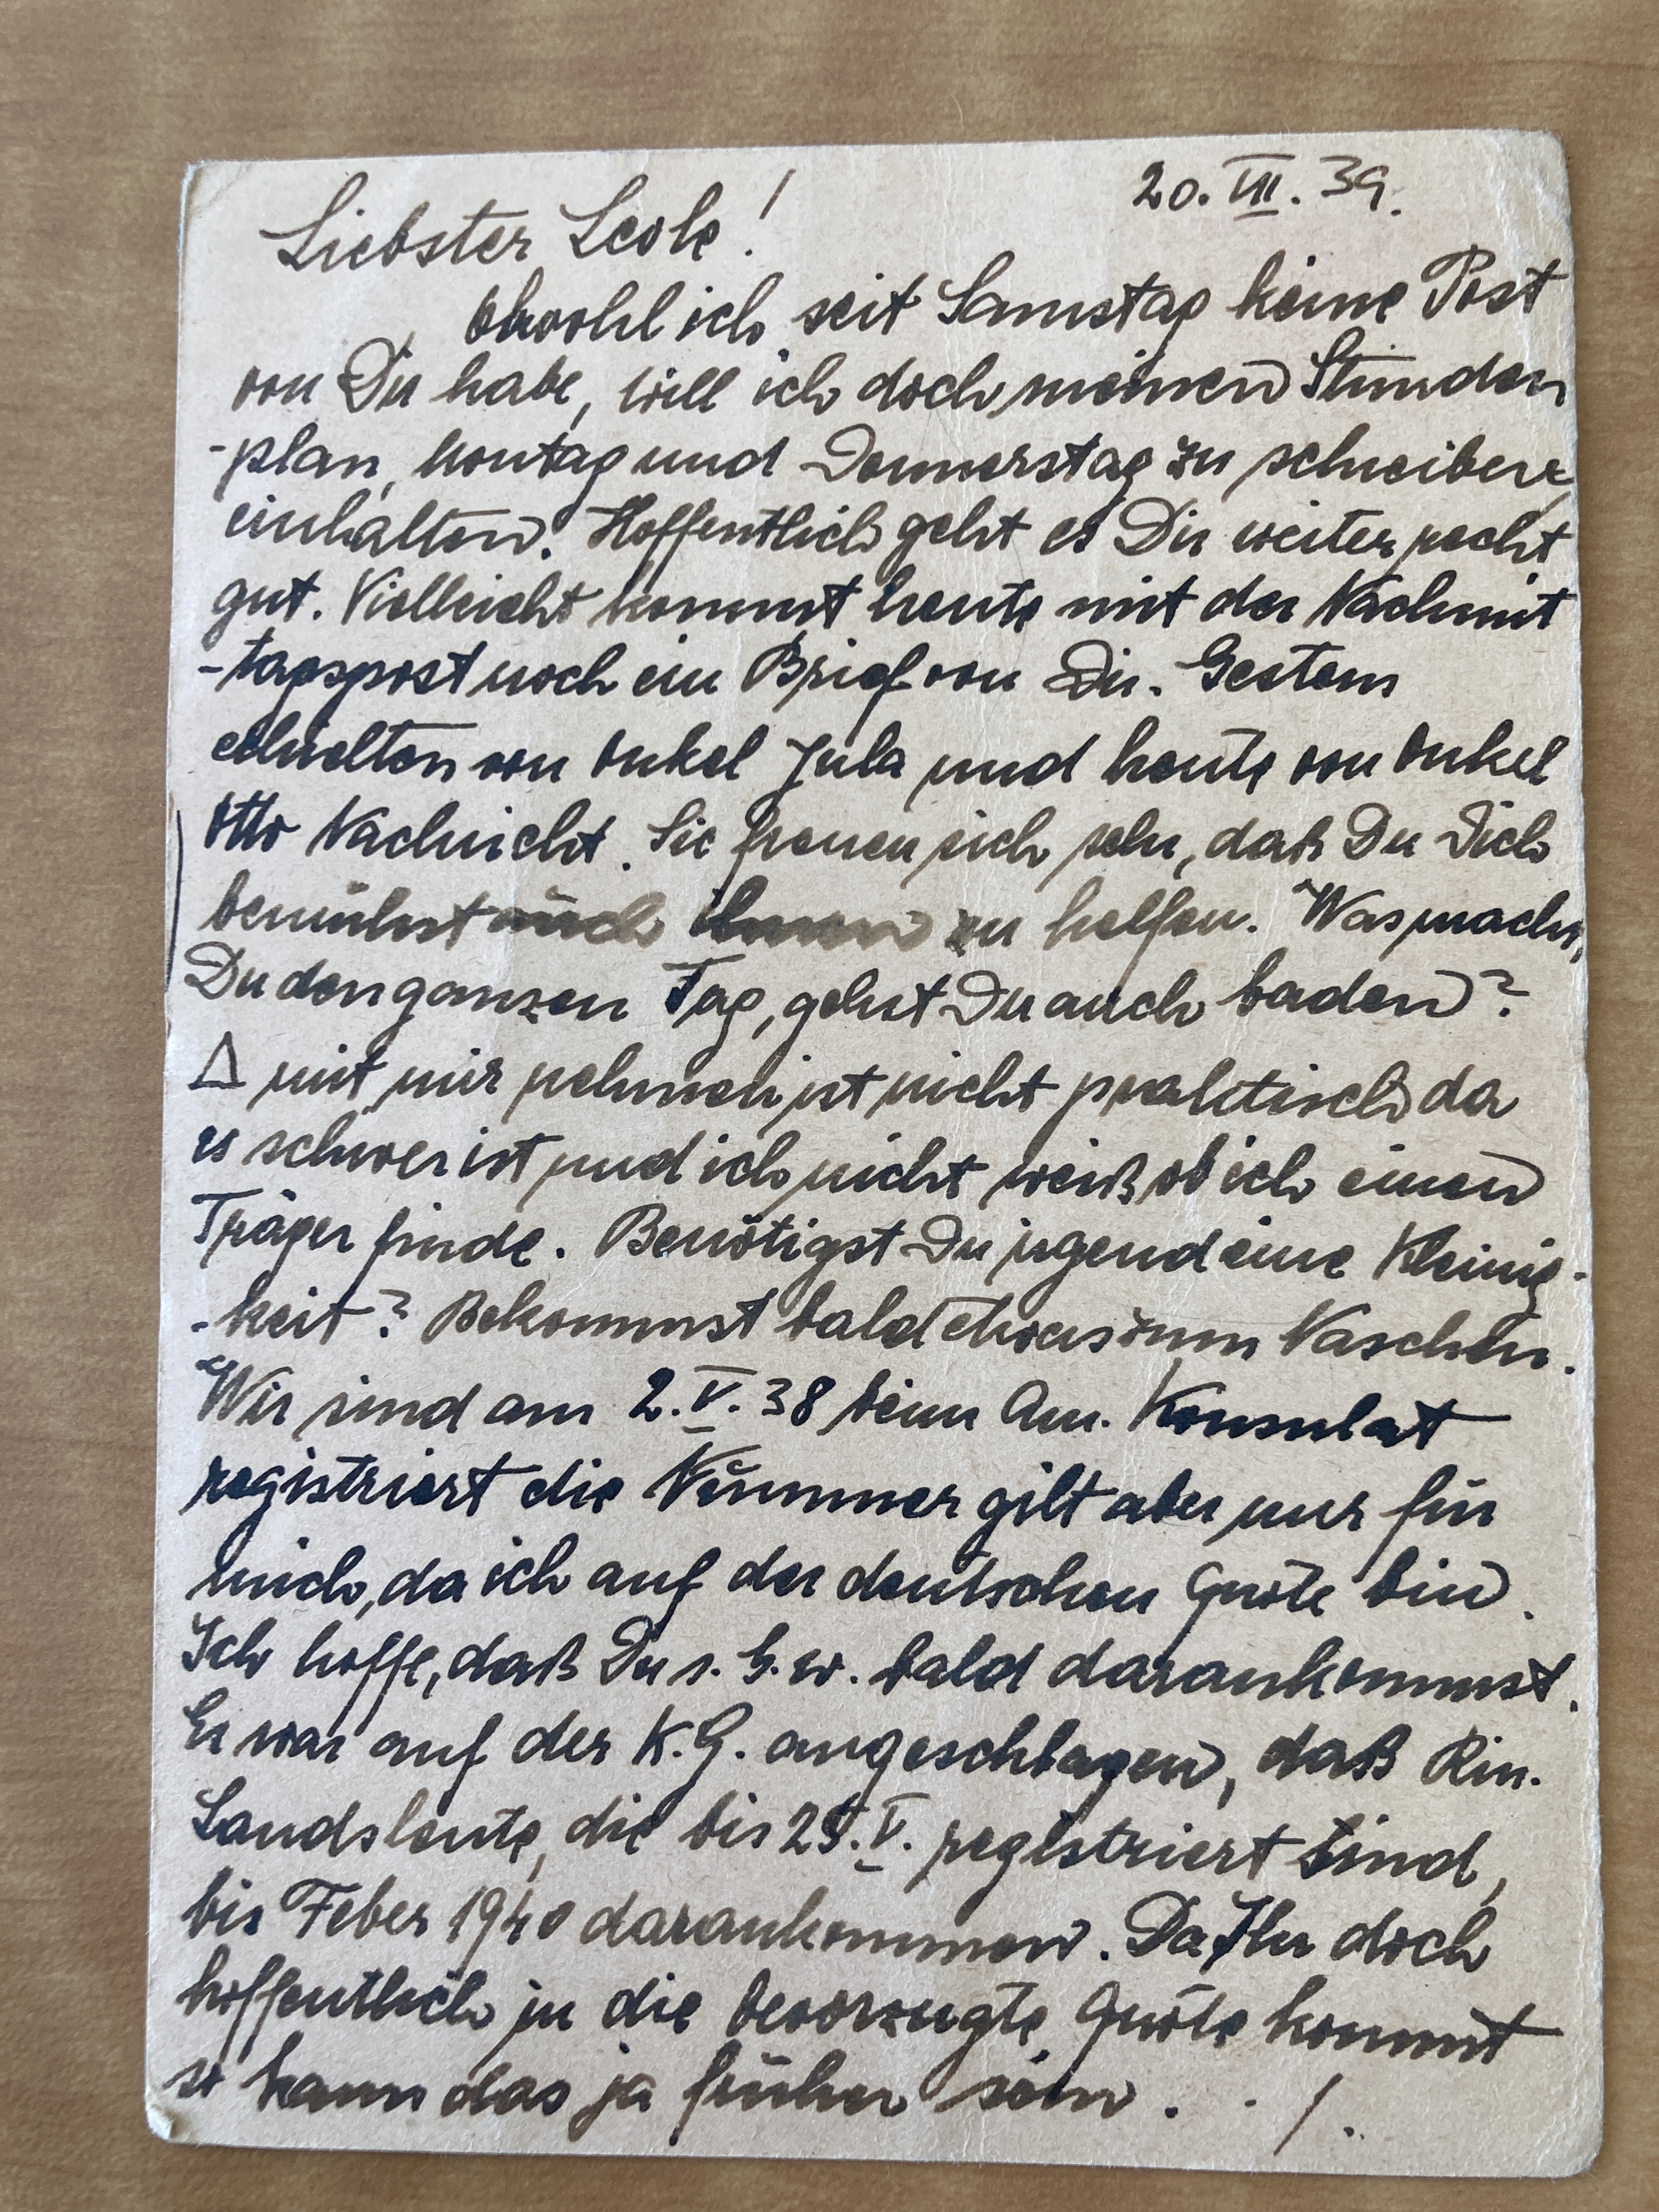 20. VII. 39.
Liebster Leole!
Obwohl ich seit Samstag keine Post
von Dir habe, will ich doch meinen Stunden
-plan, Montag und Donnerstag zu schreiben
einhalten. Hoffentlich geht es Dir weiter recht
gut. Vielleicht kommt heute mit der Nachmit
-tagspost noch ein Brief von Dir. Gestern
erhielten von Onkel Jula und heute von Onkel
Otto Nachricht. Sie freuen sich sehr, daß Du Dich
bemühst auch ihnen zu helfen. Was machst
Du den ganzen Tag, gehst Du auch baden?
Δ mit mir nehmen ist nicht praktisch da
es schwer ist und ich nicht weiß ob ich einen
Träger finde. Benötigst Du irgend eine Kleinig-
-keit? Bekommst bald etwas zum Naschen.
Wir sind am 2. V. 38 beim Am. Konsulat
registriert die Nummer gilt aber nur für
mich, da ich auf der deutschen Quote bin.
Ich hoffe, daß Du s. G. w. bald darankommst.
Es war auf der K.G. angeschlagen, daß Rm.
Landsleute, die bis 25. V. registriert sind,
bis Feber 1940 darankommen. Da Ihr doch
hoffentlich in die bevorzugte Quote kommt
so kann das ja früher sein. . /.